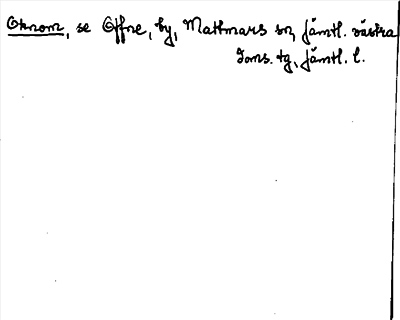 Oknom, se Offne, by, Mattmars sn, Jämtl. västra
Doms. tg, Jämtl. l.